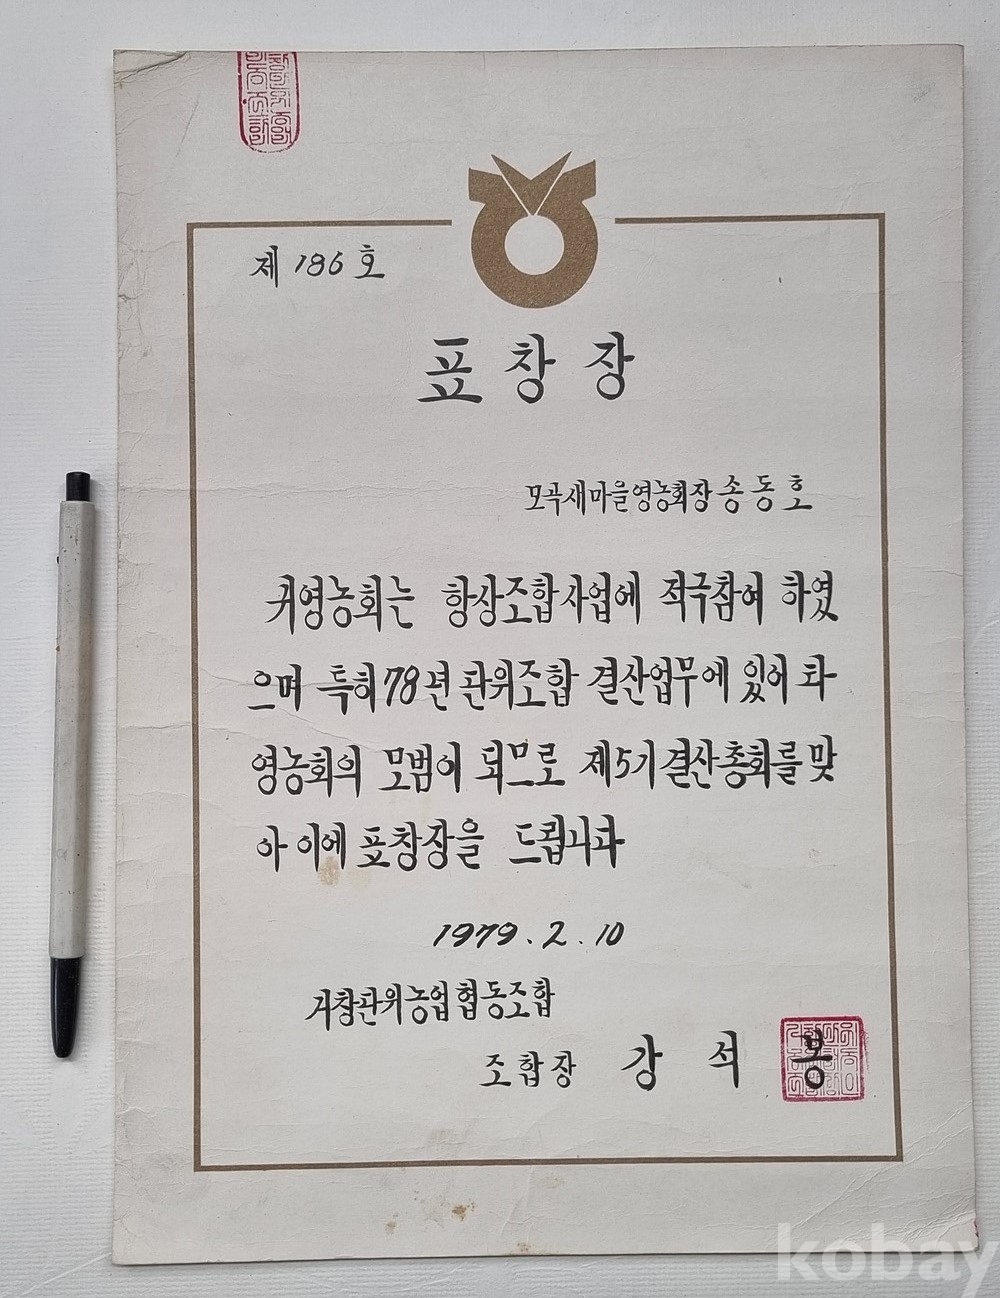 제 186 호
표창장
모곡새마을영농회장 송동호
귀영농회는 항상조합사업에 적극참여 하였
으며 특히 78년 단위조합 결산업무에 있어 타
영농회의 모범이 되므로 제5기 결산총회를 맞
아 이에 표창장을 드립니다
1979. 2. 10
거창단위농업협동조합
조합장 강석봉
kobay